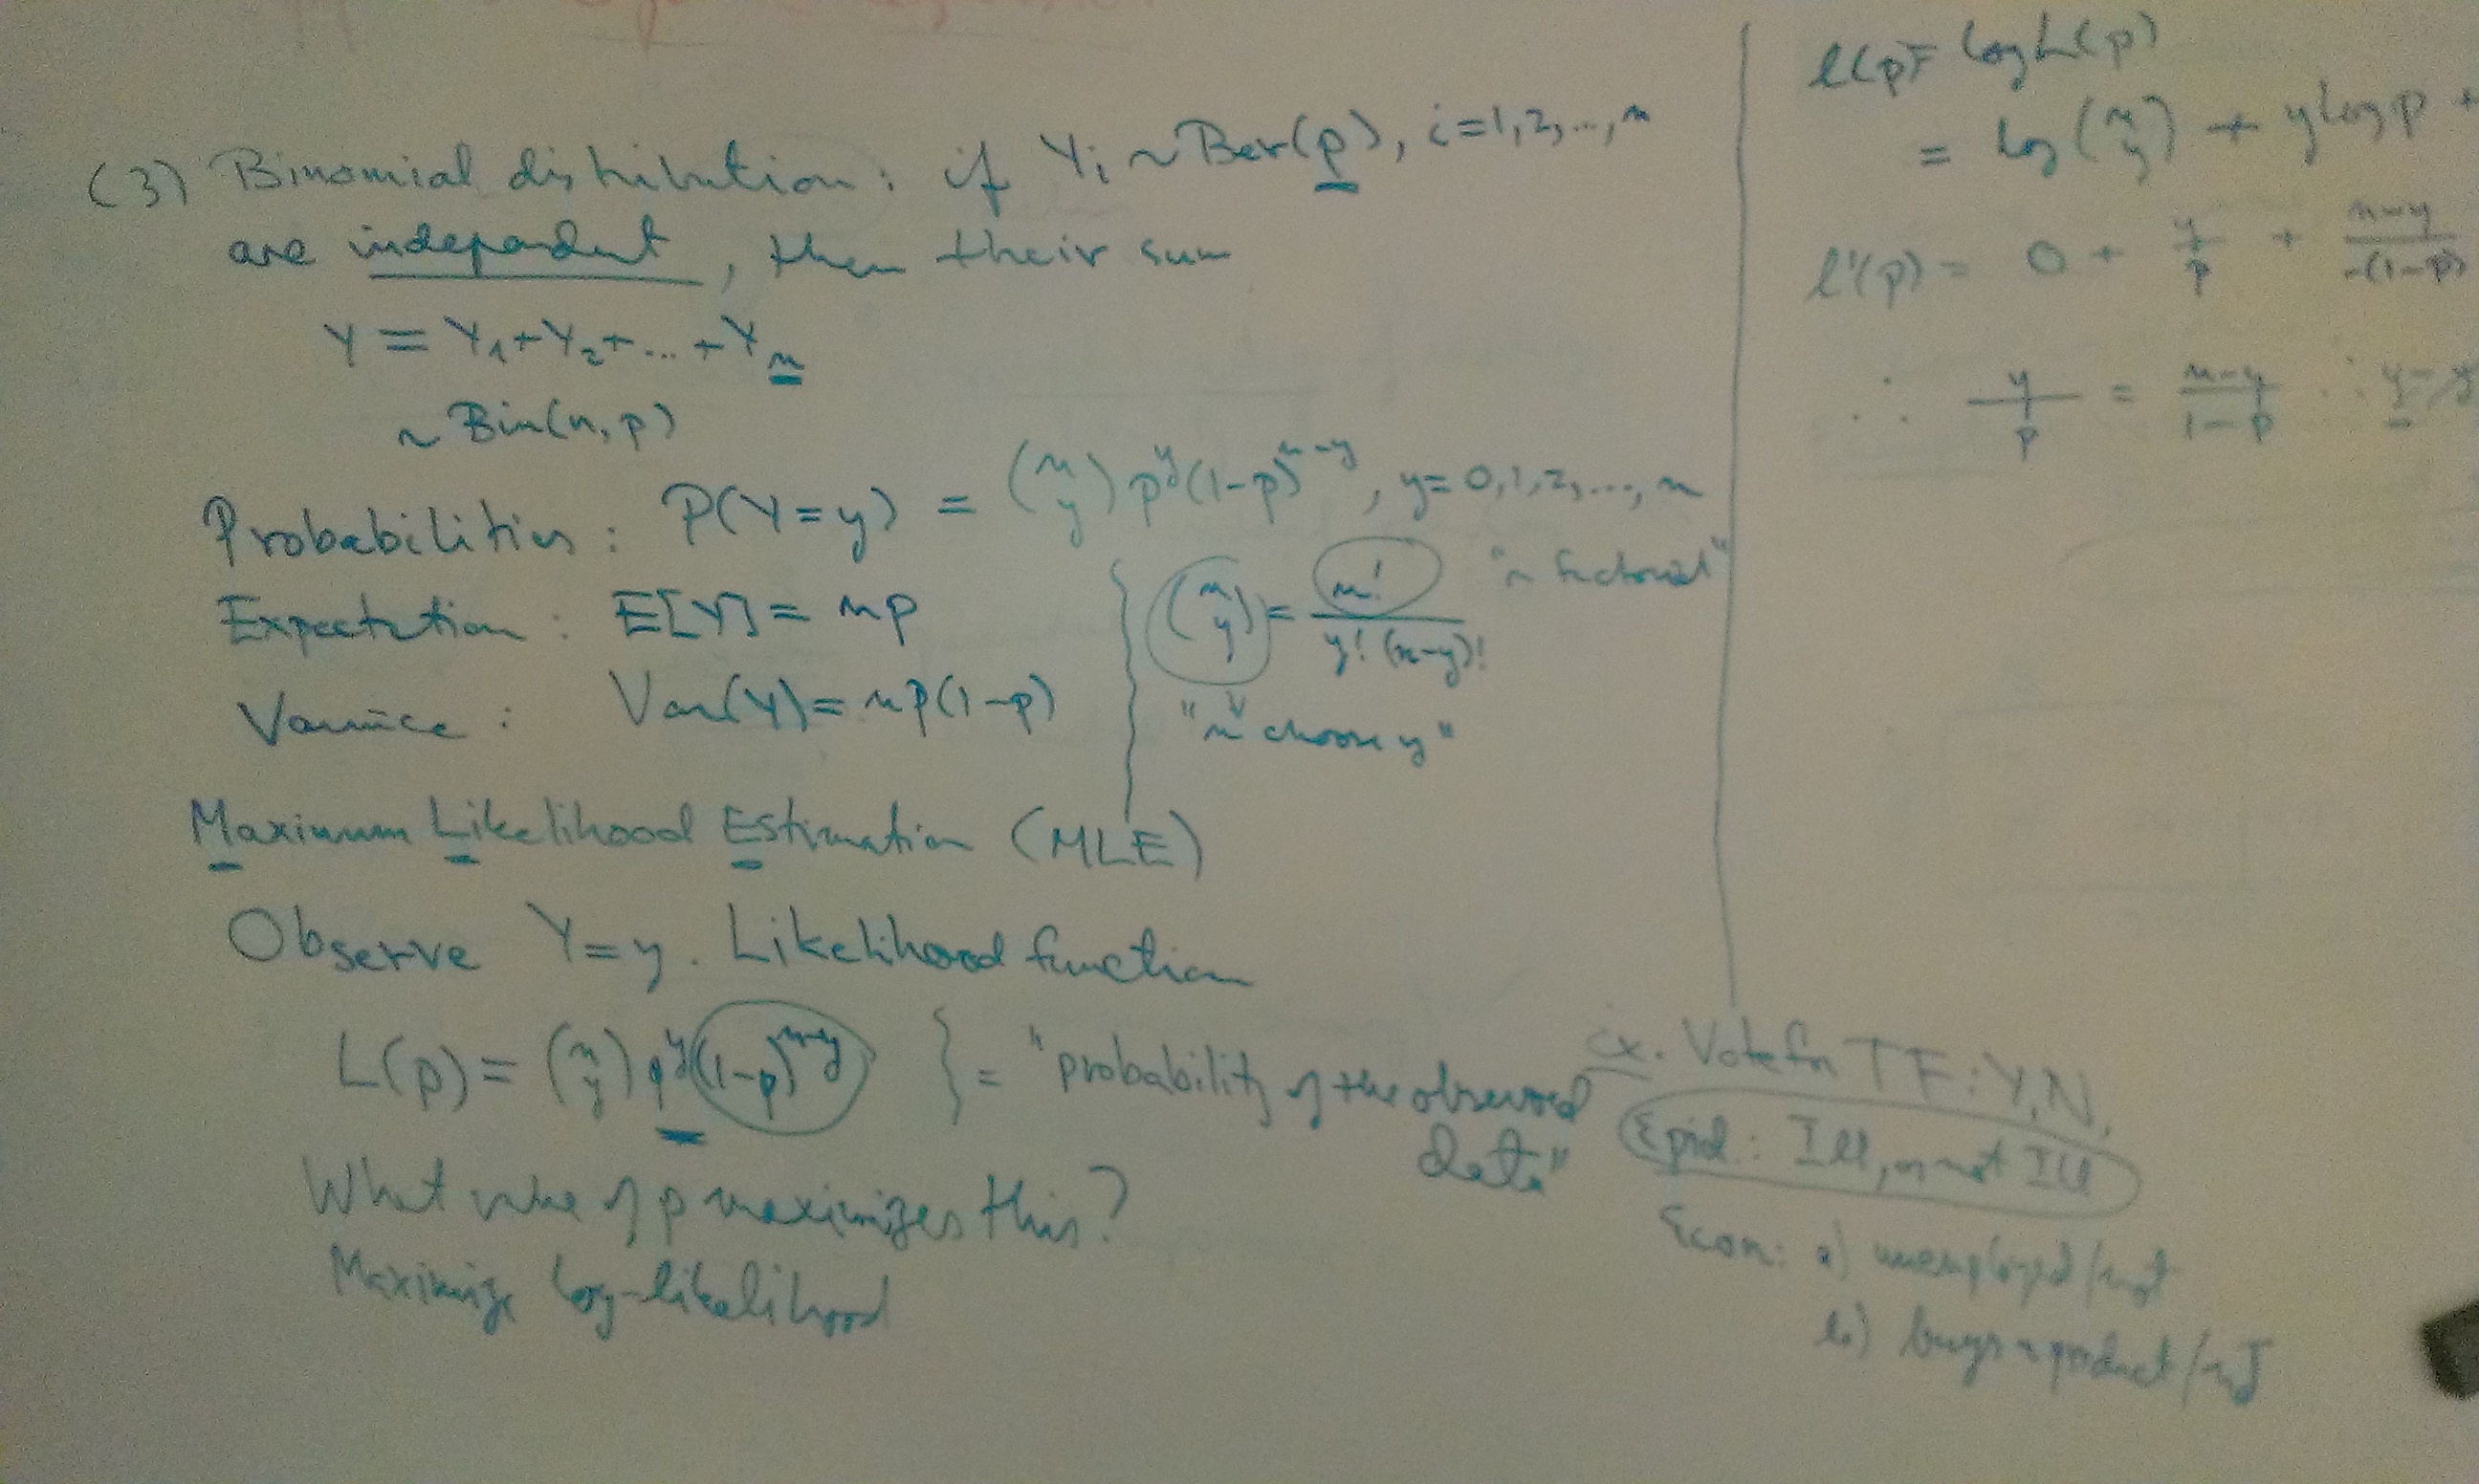 (3) Binomial distribution: if Yi ~ Ber(p), i=1,2,...,n
are independent, then their sum
Y = Y₁+Y₂+...+Yn
~ Bin(n,p)
Probabilities: P(Y=y) = (n y) p^y (1-p)^(n-y), y=0,1,2,...,n
Expectation: E[Y] = np
Variance: Var(Y) = np(1-p)
(n y) = n! / y!(n-y)!
"n factorial"
"n choose y"
Maximum Likelihood Estimation (MLE)
Observe Y=y. Likelihood function
L(p) = (n y) p^y (1-p)^(n-y) } = "probability of the observed
data"
What value of p maximizes this?
Maximize log-likelihood
l(p) = log L(p)
= log (n y) + y log p +
l'(p) = 0 + y/p + n-y / -(1-p)
∴ y/p = n-y / 1-p ∴ y-y
ex. Vote for TF: Y, N,
Epid: Ill, or not Ill
Econ: a) unemployed/not
b.) buys a product/not